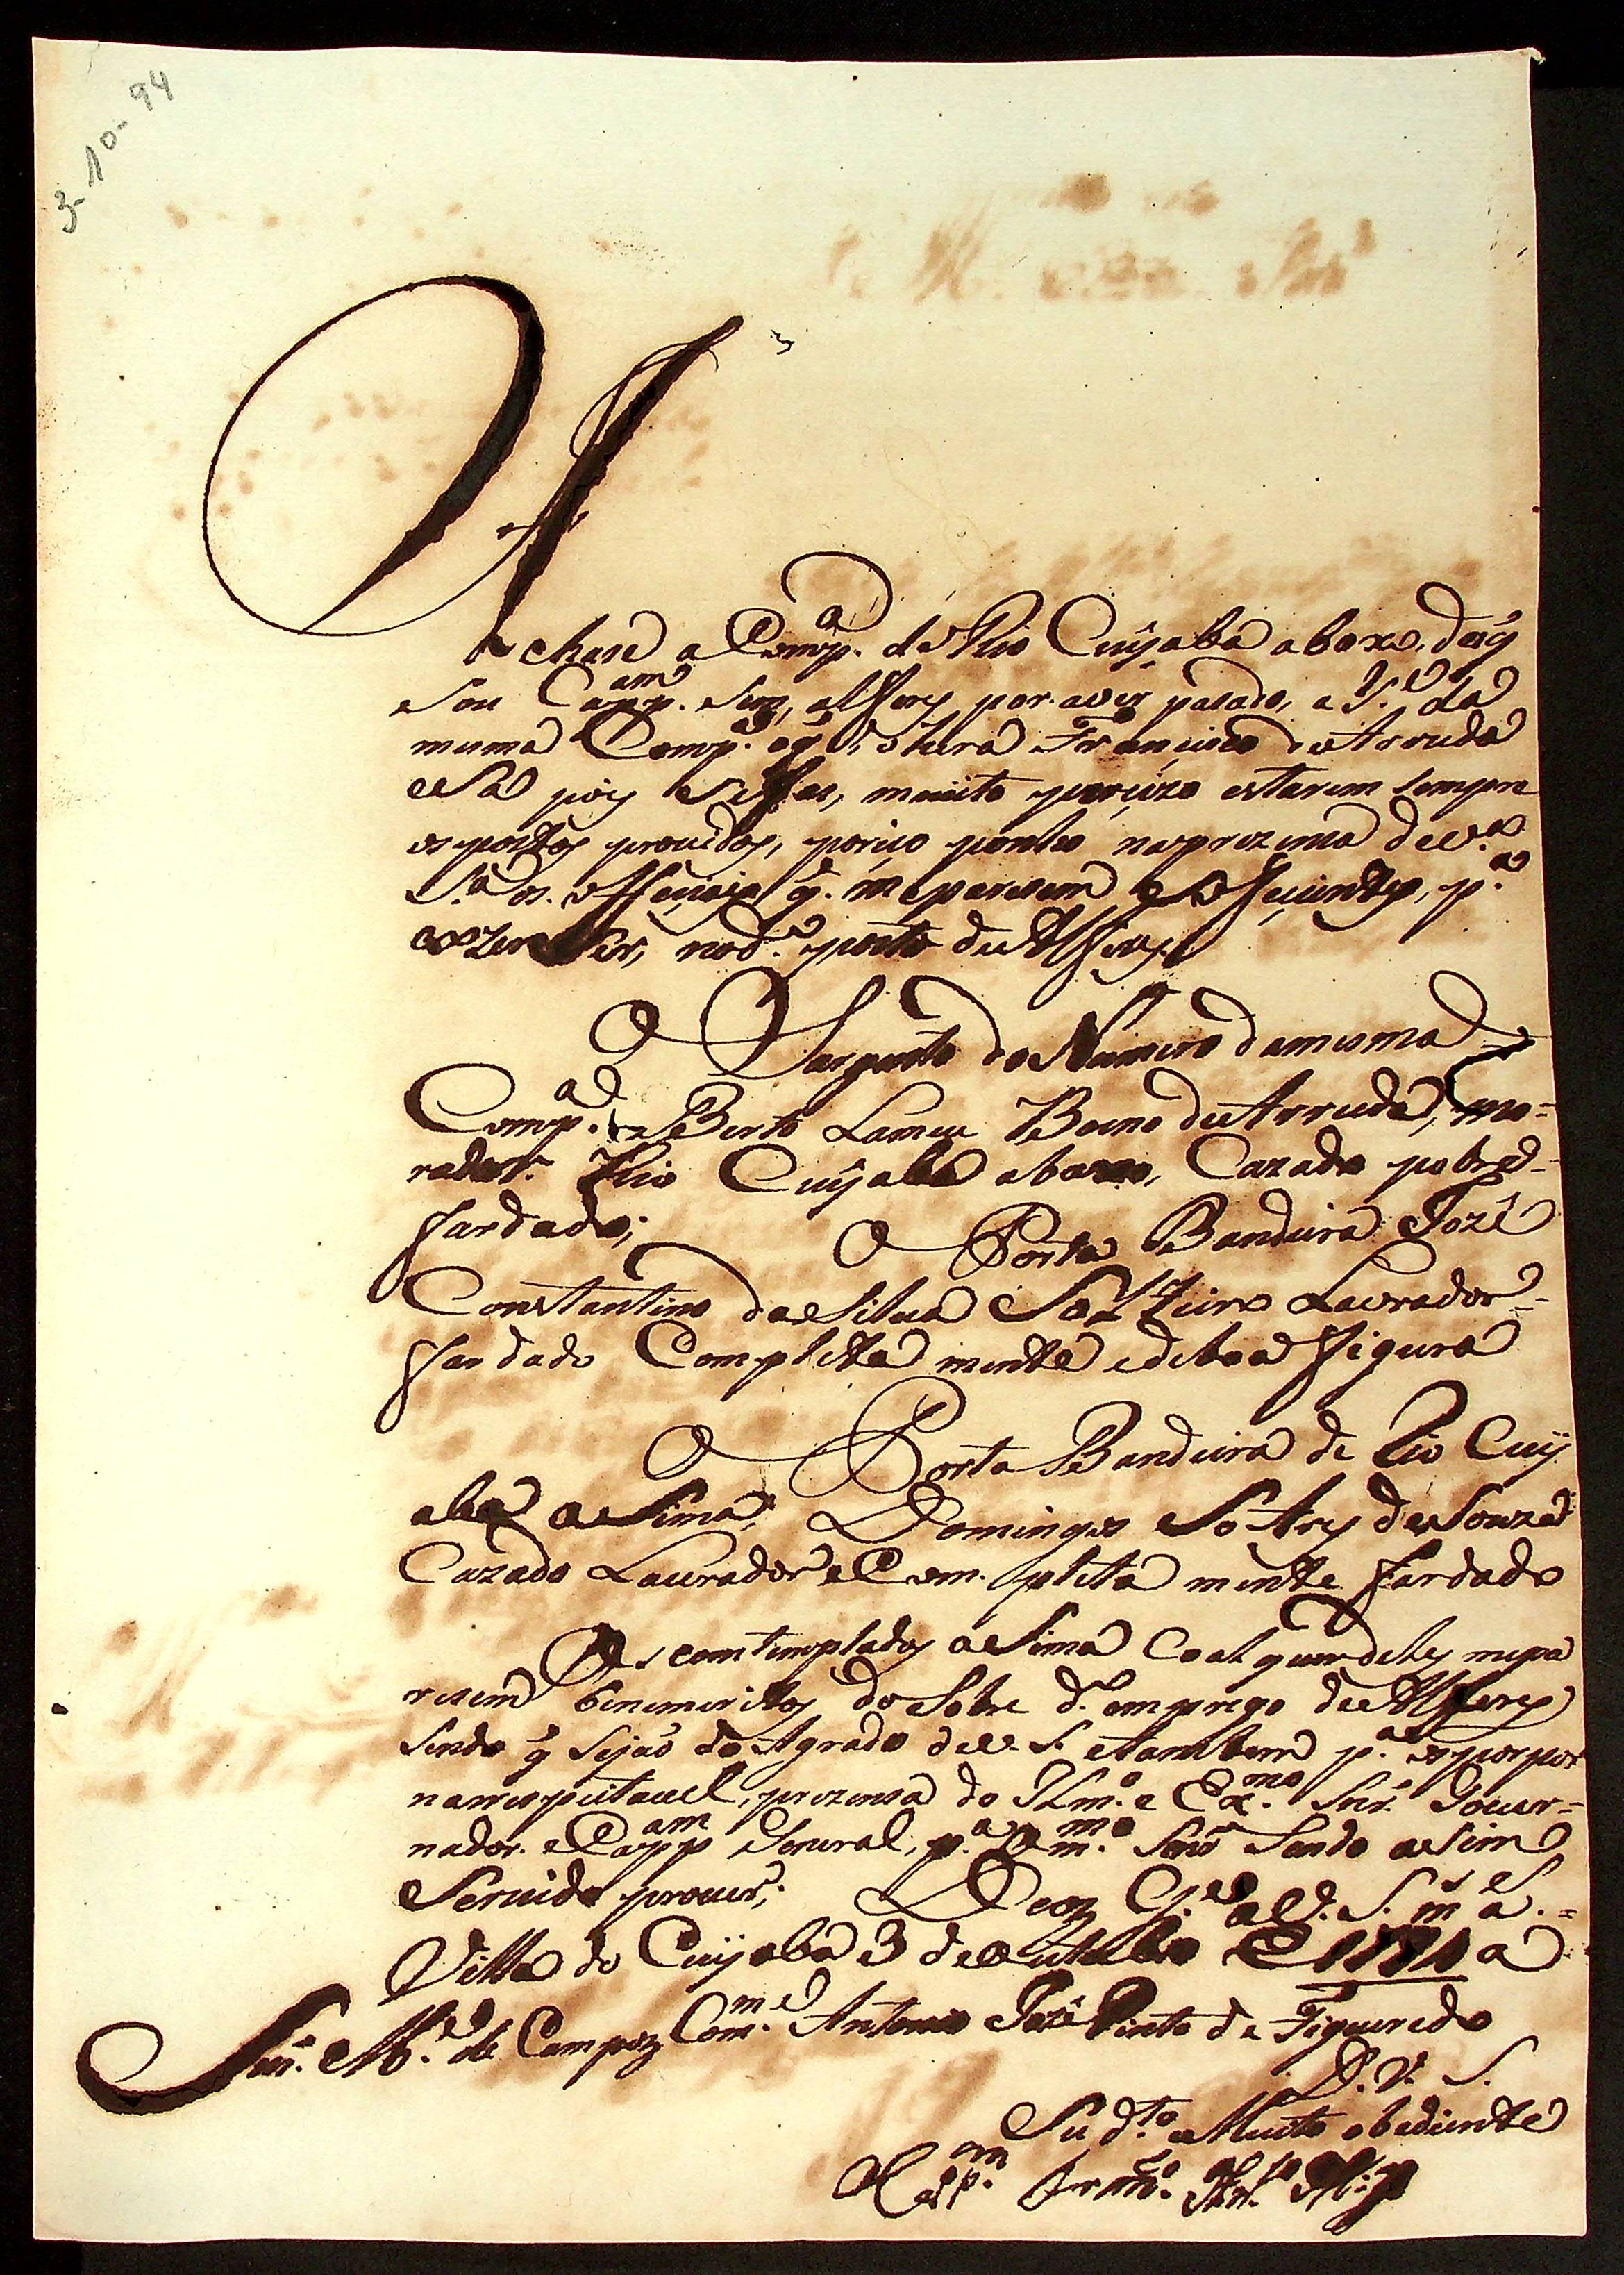 3-10-94
Achase a Comp.ª do Rio Cuyaba abaxo, de q̃
Sou Cap.am sem, alferes por aver pasado, a T.e da
mesma Comp.ª Francisco de Arruda
e Sa pois muito percizo estarem sempre
os postos provedos, por iso ponho na prezensa de V.ª
S.ª os officiais q̃. me paresem p.ª
exzerser, no d.º posto de Alferes
O Sargento do Numero da mesma
Comp.ª Berto Lame Boeno de Arruda, mo=
rador. Rio Cuyaba abaxo, Cazado pobre
fardado;
O Porta Bandeira Jozé
Constantino da Silva Solteiro Lavrador
fardado Completa mente e de boa figura
O Porta Bandeira de Rio Cuy
aba asima, Domingos de Souza
Cazado Lavrador e Com pleta mente fardado
Os comtemplados asima Coal quer deles me pa
resem benemeritos do Sobre d.º emprego de Alferes
sendo q̃ sejaõ do Agrado de V. S. e tambem p.ª os por por
na respeitavel, prezensa do Ilm.º e Ex.mo Snr. Gover=
nador. e Cap.am General, p.ª o m.mo Snr Sendo asim
Servido prover;. Deos G.e a V. S. m.s a.s =
Villa do Cuyaba 3 de Outubro de 1794 a
Snr. M.e de Campoz Com.me Antonio Jozé Pinto de Figueredo
D. V. S.
Su d.to e Muito obediente
Cap.m